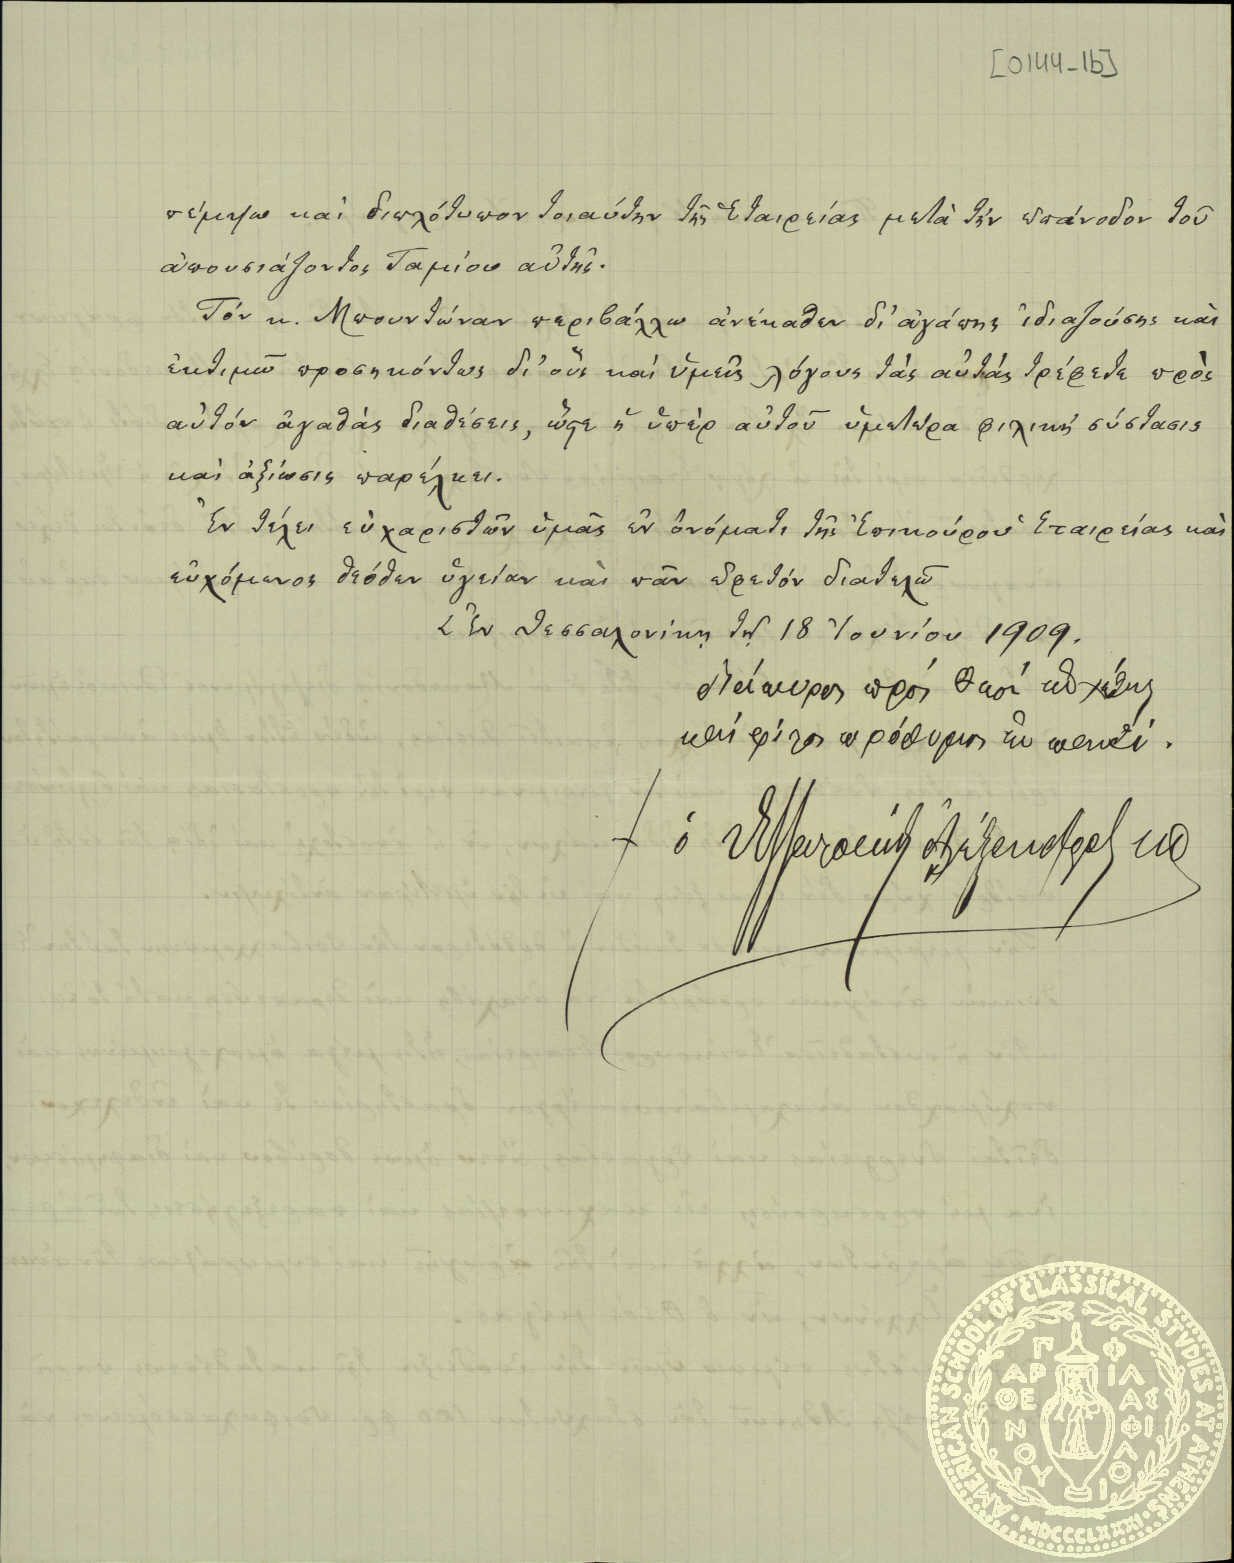 [0144-1b]
πέμψω καὶ διπλότυπον τοιαύτην τῆς Ἑταιρείας μετὰ τὴν ἐπάνοδον τοῦ
ἀπουσιάζοντος Ταμίου αὐτῆς.
Τόν κ. Μπουντώναν περιβάλλω ἀνέκαθεν δι' ἀγάπης ἰδιαζούσης καὶ
ἐκτιμῶ προσηκόντως δι' οὓς καί ὑμεῖς λόγους τάς αὐτάς τρέφετε πρὸς
αὐτόν ἀγαθάς διαθέσεις, ὥστε ἡ ὑπὲρ αὐτοῦ ὑμετέρα φιλική σύστασις
καὶ ἀξίωσις παρέλκει.
Ἐν τέλει εὐχαριστῶν ὑμᾶς ἐν ὀνόματι τῆς Ἐπικούρου Ἑταιρείας καὶ
εὐχόμενος θεόθεν ὑγείαν καὶ πᾶν ἐφετόν διατελῶ
Ἐν Θεσσαλονίκῃ τῇ 18 Ἰουνίου 1909.
Διάπυρος πρός Θεόν εὐχέτης
καί φίλος πρόθυμος ἐν παντί.
† ὁ Θεσσαλονίκης Ἀλέξανδρος
AMERICAN SCHOOL OF CLASSICAL STUDIES AT ATHENS
ΠΑΡΘΕΝΟΥ ΦΙΛΑΣ ΦΙΛΟΙ
MDCCCLXXXI